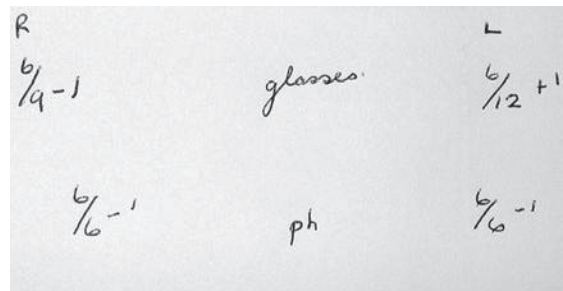 R L
6/9 -1 glasses. 6/12 +1
6/6 -1 ph 6/6 -1